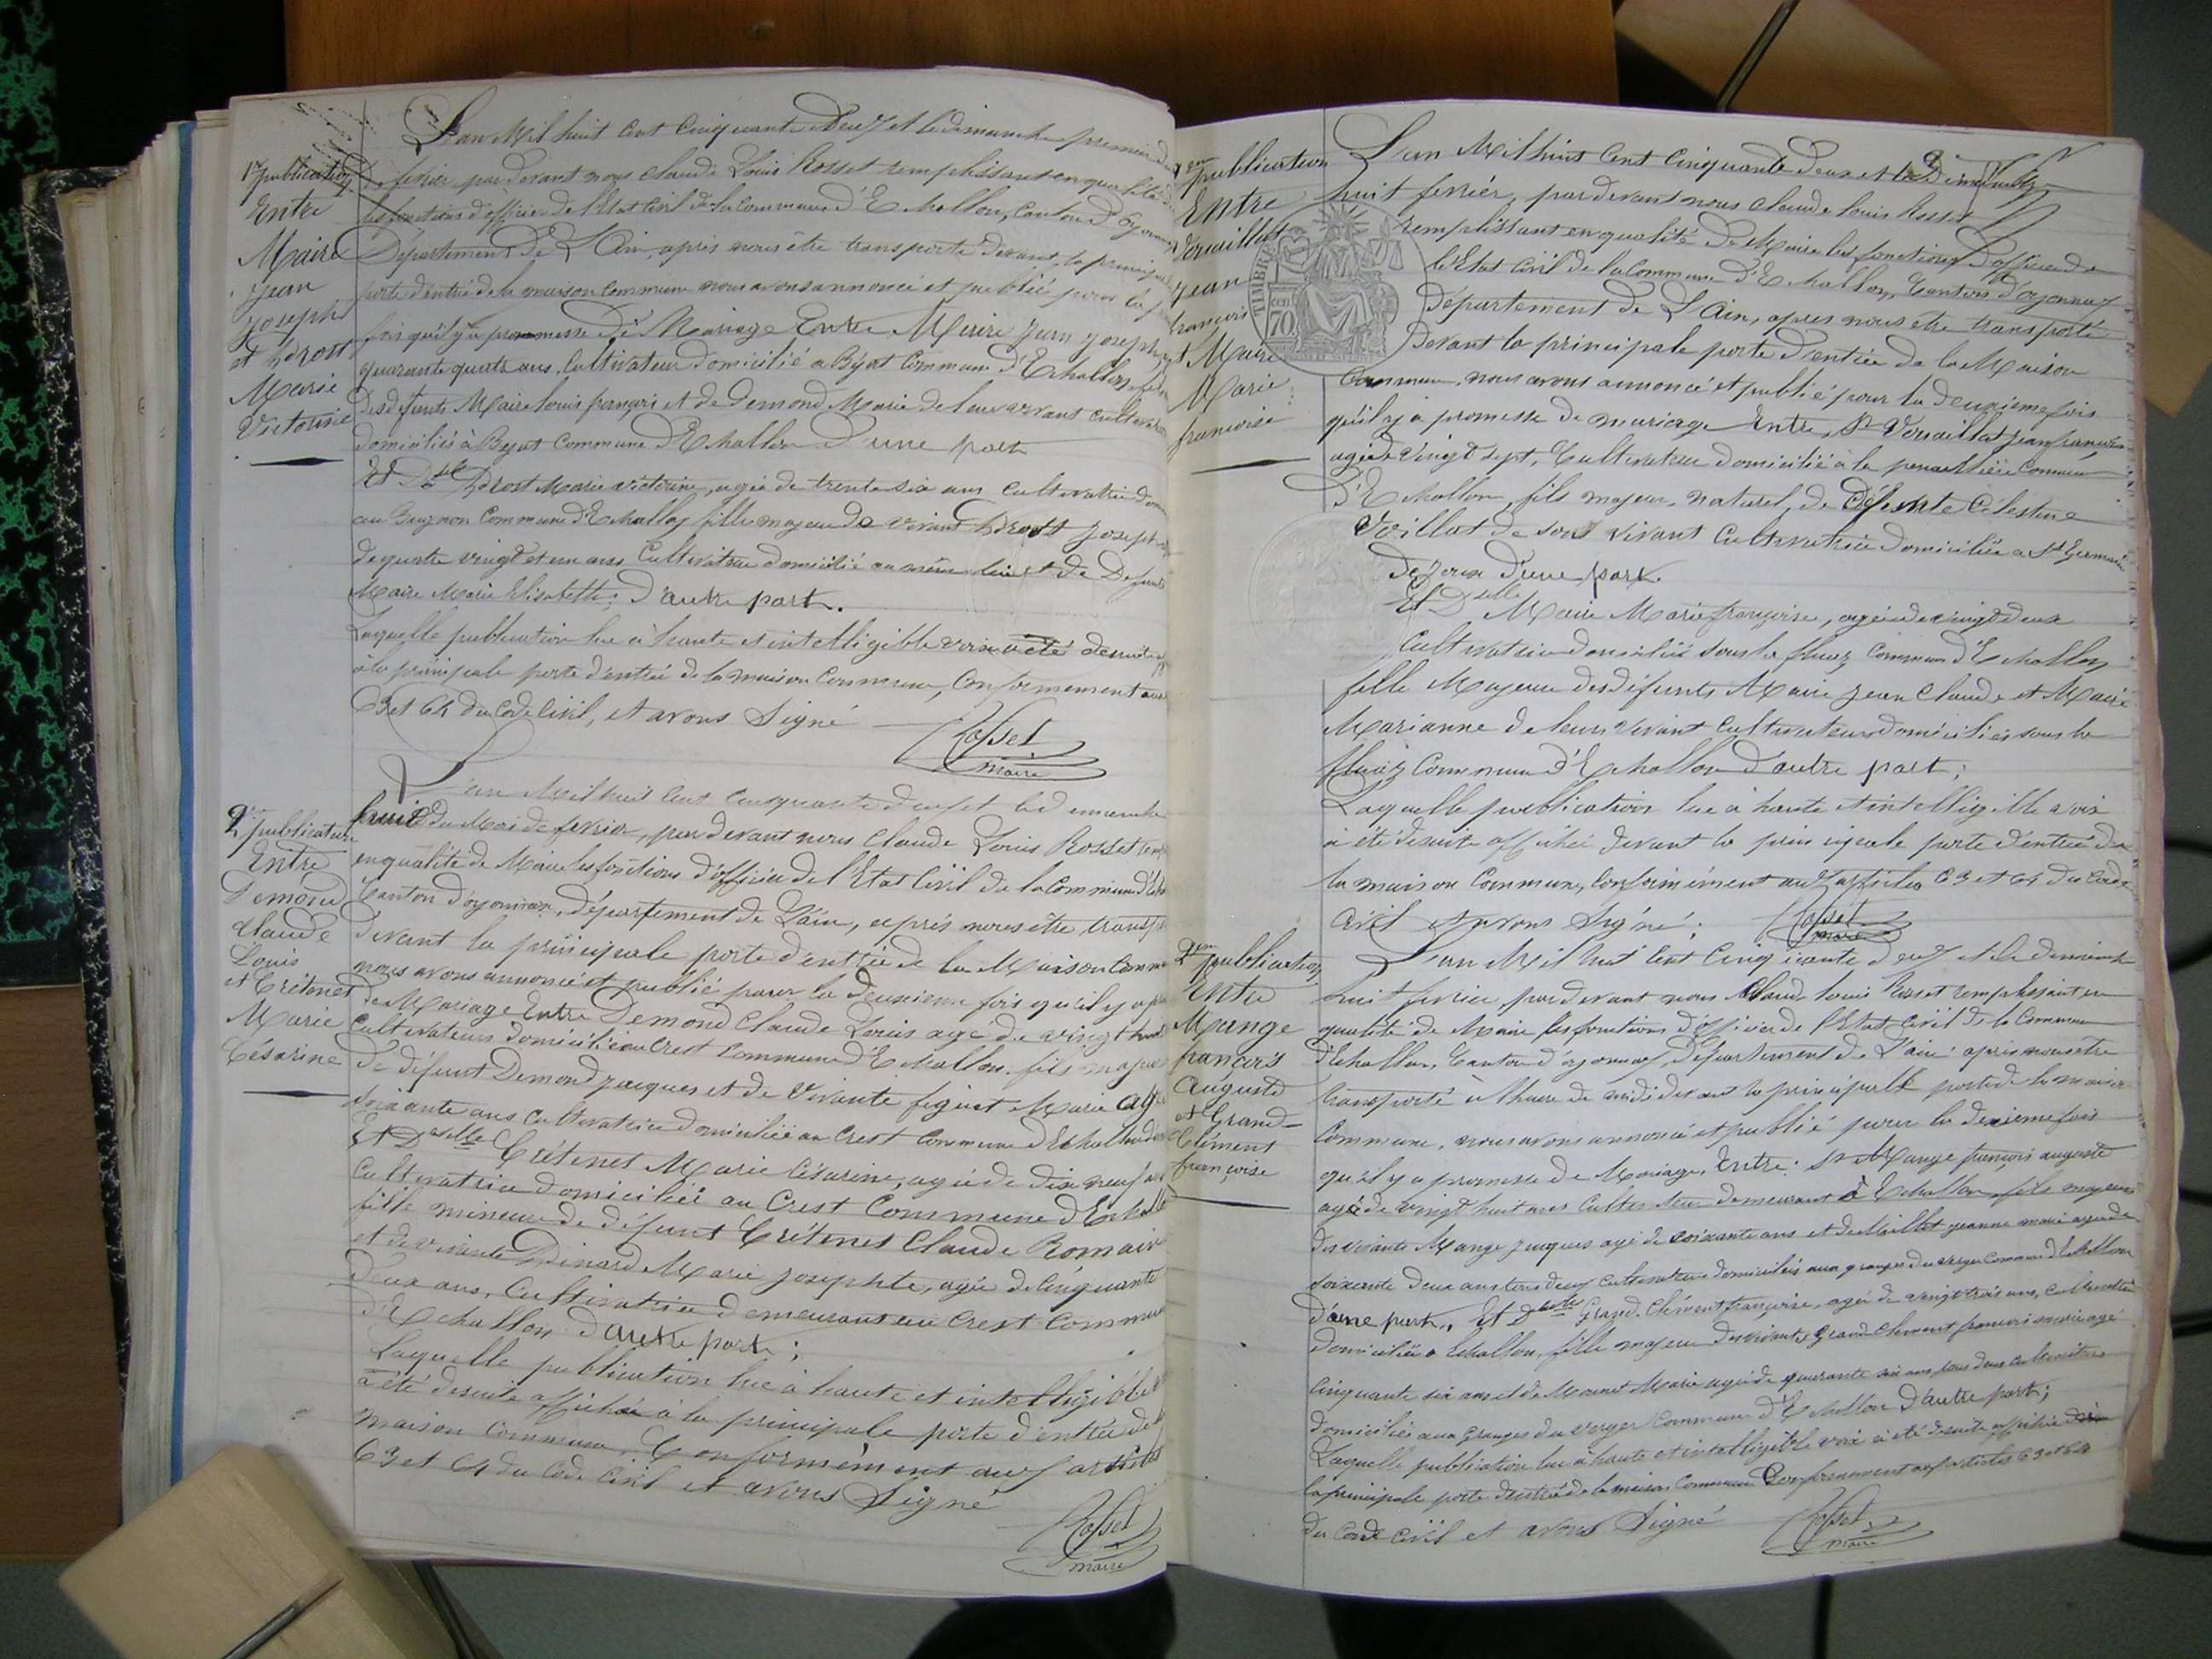 1ere publication
Entre
Maire
Jean
Joseph
et Drost
Marie
Victorine
L'an Mil huit Cent Cinquante Deux et le dimanche premier du
de fevrier par devant nous Claude Louis Rosset remplissant en qualité de
les fonctions d'officier de l'Etat Civil de la Commune d'Echallon, Canton d'oyonnax
Département De L'Ain, après nous être transporté devant la principale
porte d'entrée de la maison Commune nous avons annoncé et publié pour la
fois qu'il y a promesse de Mariage Entre Maire Jean Joseph,
quarante quatre ans, Cultivateur domicilié a Béjat Commune d'Echallon fils
des défunts Maire Louis françois et de Demond Marie de leur vivant cultivateurs
domiciliés à Bejat Commune d'Echallon d'une part
Et Dlle Drost Marie victorine, agée de trente six ans cultivatrice
au Commune d'Echallon fille majeure de vivant Drost Joseph
de quatre vingt et un ans Cultivateur domicilié au même lieu et de Defunte
Maire Marie Elisabeth; D'autre part.
Laquelle publication lue à haute et intelligible voix a été de suite
à la principale porte d'entrée de la maison Commune, Conformement aux
63 et 64 du Code Civil, et avons Signé
Rosset
maire
2eme publication
Entre
Demond
Claude
Louis
et Crétenet
Marie
Césarine
L'an Mil huit Cent Cinquante deux et le dimanche
huit du Mois de fevrier, par devant nous Claude Louis Rosset
en qualité de Maire les fonctions d'officier de l'Etat Civil de la Commune
Canton d'oyonnax, département de L'ain, après nous être
devant la principale porte d'entrée de la Maison Commune
nous avons annoncé et publié pour la deuxieme fois qu'il y a
de Mariage Entre Demond Claude Louis agé de vingt
Cultivateur domicilié au Crest Commune d'Echallon. fils majeur
De défunt Demond Jacques et de Vivante figuet Marie
soixante ans Cultivatrice domiciliée au Crest Commune d'Echallon
Et Dselle Crétenet Marie Césarine, agée de dix neuf ans
Cultivatrice domiciliée au Crest Commune d'Echallon
fille mineure de défunt Crétenet Claude Romain
et de vivante Marie Josephte, agée de Cinquante
Deux ans, Cultivatrice demeurant au Crest Commune
d'Echallon D'autre part;
Laquelle publication lue à haute et intelligible
a été desuite affichée à la principale porte d'entrée de
maison Commune, Conformèment aux articles
63 et 64 du Code Civil et avons Signé
Rosset
maire
publication
Entre
Vuaillat
Jean
françois
et Maire
Marie
françoise
L'an Mil huit Cent Cinquante deux et le Dimanche
huit fevrier, par devant nous Claude Louis Rosset
remplissant en qualité De Maire les fonctions D'officier de
l'Etat Civil de la Commune d'Echallon, Canton d'oyonnax
Département de L'Ain, apres nous être transporté
Devant la principale porte D'entrée de la Maison
Commune, nous avons annoncé et publié pour la deuxieme fois
qu'il y a promesse de mariage Entre Sr Vuaillat Jean françois
agé de vingt sept, Cultivateur domicilié à la Commune
d'Echallon, fils majeur, naturel, de Défunte Célestine
Vuillat de son vivant Cultivatrice domiciliée a St Germain
De Joux D'une part.
Et Dselle Maire Marie françoise, agée de vingt deux
Cultivatrice domiciliée sous le fluaz Commune d'Echallon
fille Majeure des défunts Maire Jean Claude et Maire
Marianne de leurs vivant Cultivateurs domiciliés sous le
fluaz Commune d'Echallon D'autre part;
Laquelle publication lue à haute et intelligible voix
a été desuite affichée devant la principale porte d'entrée de
la maison Commune, Conformément aux articles 63 et 64 du Code
Civil et avons Signé;
Rosset
maire
2eme publication
Entre
Mange
françois
Auguste
et Grand-
Clément
françoise
L'an Mil huit Cent Cinquante deux et le dimanche
huit fevrier par devant nous Claude Louis Rosset remplissant en
qualité de Maire les fonctions d'officier de l'Etat Civil de la Commune
d'Echallon, Canton d'oyonnax, Département de L'ain: après nous être
transporté à l'heure de midi devant la principale porte de la maison
Commune, nous avons annoncé et publié pour la dexieme fois
qu'il y a promesse de Mariage, Entre: Sr Mange françois auguste
agé de vingt huit ans Cultivateur demeurant à Echallon fils majeur
des vivants Mange Jacques agé de soixante ans et de Maillet Jeanne marie agée de
soixante deux ans tous deux Cultivateurs domiciliés aux granges du verger Commune d'Echallon
d'une part, Et Dselle Grand. Clément françoise, agée de vingt trois ans, Cultivatrice
domiciliée a Echallon, fille majeure des vivants Grand Clement francois marie agé
Cinquante six ans et de Marie agée de quarante six ans, tous deux cultivateurs
domiciliés aux Granges du verger Commune d'Echallon D'autre part;
Laquelle publication lue à haute et intelligible voix a été desuite affichée
la principale porte d'entrée de la maison Commune Conformement aux articles 63 et 64
du Code Civil et avons Signé
Rosset
maire
TIMBRE
70
cen